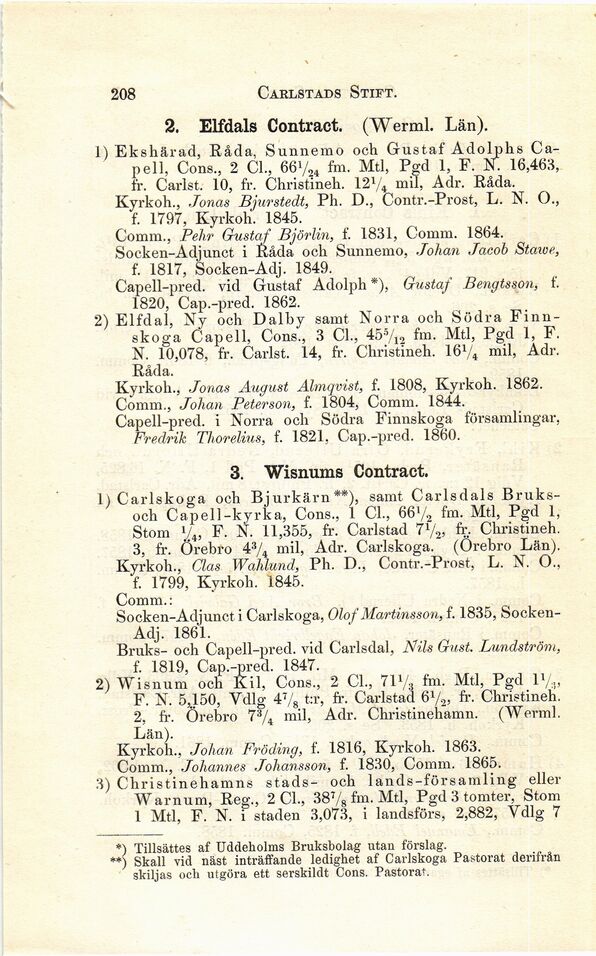 208 CARLSTADS STIFT.
2. Elfdals Contract. (Werml. Län).
1) Ekshärad, Råda, Sunnemo och Gustaf Adolphs Ca-
pell, Cons., 2 Cl., 66¹/₂₄ fm. Mtl, Pgd 1, F. N. 16,463,
fr. Carlst. 10, fr. Christineh. 12¹/₄ mil, Adr. Råda.
Kyrkoh., Jonas Bjurstedt, Ph. D., Contr.-Prost, L. N. O.,
f. 1797, Kyrkoh. 1845.
Comm., Pehr Gustaf Björlin, f. 1831, Comm. 1864.
Socken-Adjunct i Råda och Sunnemo, Johan Jacob Stawe,
f. 1817, Socken-Adj. 1849.
Capell-pred. vid Gustaf Adolph *), Gustaf Bengtsson, f.
1820, Cap.-pred. 1862.
2) Elfdal, Ny och Dalby samt Norra och Södra Finn-
skoga Capell, Cons., 3 Cl., 45⁵/₁₂ fm. Mtl, Pgd 1, F.
N. 10,078, fr. Carlst. 14, fr. Christineh. 16¹/₄ mil, Adr.
Råda.
Kyrkoh., Jonas August Almqvist, f. 1808, Kyrkoh. 1862.
Comm., Johan Peterson, f. 1804, Comm. 1844.
Capell-pred. i Norra och Södra Finnskoga församlingar,
Fredrik Thorelius, f. 1821, Cap.-pred. 1860.
3. Wisnums Contract.
1) Carlskoga och Bjurkärn **), samt Carlsdals Bruks-
och Capell-kyrka, Cons., 1 Cl., 66¹/₂ fm. Mtl, Pgd 1,
Stom ¹/₄, F. N. 11,355, fr. Carlstad 7¹/₂, fr. Christineh.
3, fr. Örebro 4³/₄ mil, Adr. Carlskoga. (Örebro Län).
Kyrkoh., Clas Wahlund, Ph. D., Contr.-Prost, L. N. O.,
f. 1799, Kyrkoh. 1845.
Comm.:
Socken-Adjunct i Carlskoga, Olof Martinsson, f. 1835, Socken-
Adj. 1861.
Bruks- och Capell-pred. vid Carlsdal, Nils Gust. Lundström,
f. 1819, Cap.-pred. 1847.
2) Wisnum och Kil, Cons., 2 Cl., 71¹/₃ fm. Mtl, Pgd 1¹/₃,
F. N. 5,150, Vdlg 4⁷/₈ t:r, fr. Carlstad 6¹/₂, fr. Christineh.
2, fr. Örebro 7³/₄ mil, Adr. Christinehamn. (Werml.
Län).
Kyrkoh., Johan Fröding, f. 1816, Kyrkoh. 1863.
Comm., Johannes Johansson, f. 1830, Comm. 1865.
3) Christinehamns stads- och lands-församling eller
Warnum, Reg., 2 Cl., 38⁷/₈ fm. Mtl, Pgd 3 tomter, Stom
1 Mtl, F. N. i staden 3,073, i landsförs, 2,882, Vdlg 7
*) Tillsättes af Uddeholms Bruksbolag utan förslag.
**) Skall vid näst inträffande ledighet af Carlskoga Pastorat derifrån
skiljas och utgöra ett serskildt Cons. Pastorat.